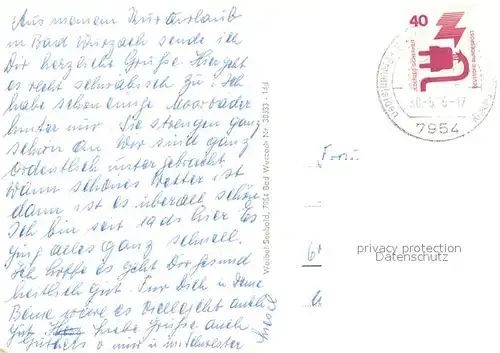 Aus meinem Kururlaub
in Bad Wurzach sende ich
Dir herzliche Grüße. Hier geht
es recht schwäbisch zu. Ich
habe schon einige Moorbäder
hinter mir. Sie strengen ganz
schön an. Wir sind ganz
ordentlich untergebracht
Wann schönes Wetter ist
dann ist es überall schön.
Ich bin seit 19ds hier. Es
ging alles ganz schnell.
Ich hoffe es geht Dir gesund
heitlich gut. Für Dich u deine
Beine wäre es vielleicht auch
gut. Liebe Grüße auch
v mir u m Schwester
Waibel-Seebold, 7954 Bad Wurzach Nr. 30333-144
40
7954
Frau
privacy protection
Datenschutz